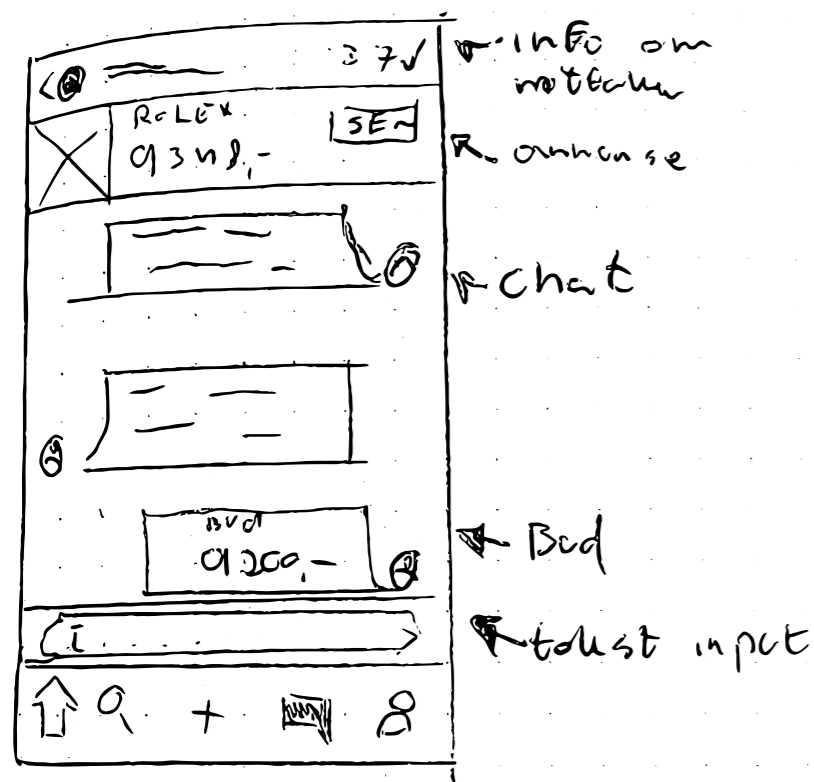 Info om
modtager
ROLEX
SE
annonse
Chat
BUD
9200,-
Bud
tekst input